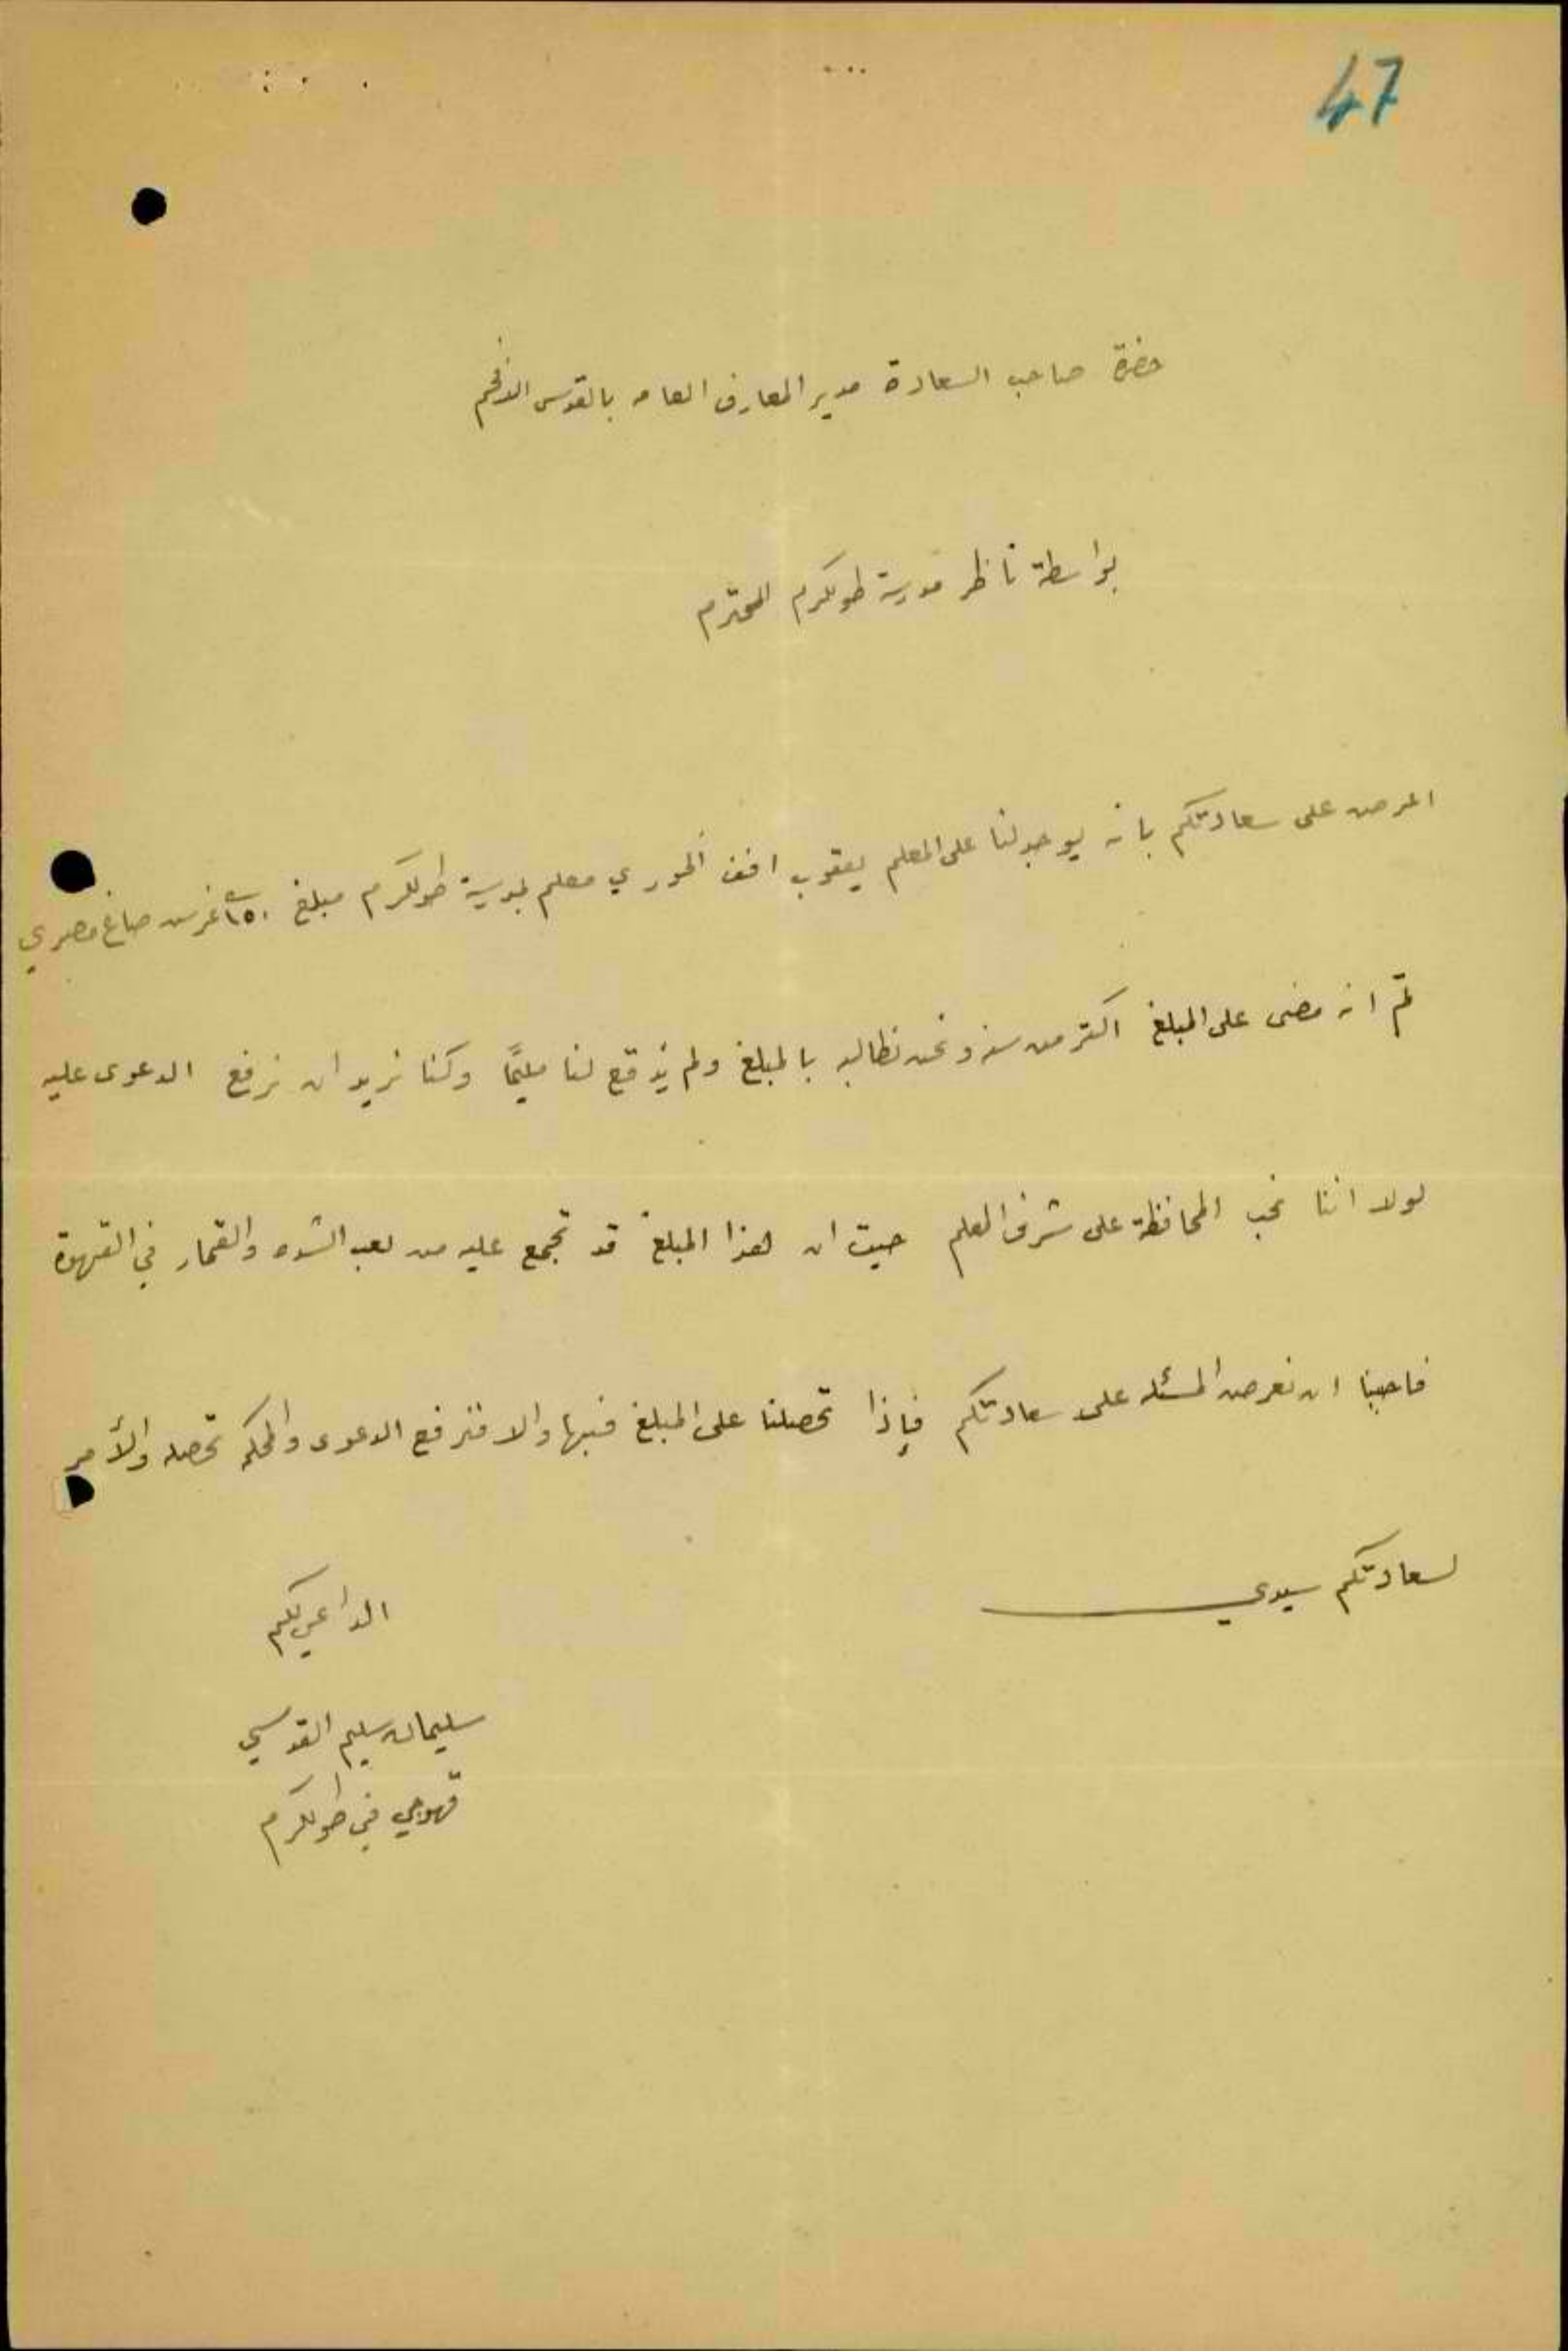 47
حضرة صاحب السعادة مدير المعارف العامه بالقدس الافخم
بواسطة ناظر مدرسة طولكرم المحترم
اعرض على سعادتكم بانه يوجد لنا على المعلم يعقوب افند الخوري معلم بمدرسة طولكرم مبلغ ١٥٠ غرش صاغ مصري
ثم انه مضى على المبلغ اكثر من سنه ونحن نطالبه بالمبلغ ولم يدفع لنا مليمًا وكنا نريد ان نرفع الدعوى عليه
لولا اننا نحب المحافظة على شرف المعلم حيث ان هذا المبلغ قد تجمع عليه من لعب الشده والقمار في القهوة
فاحببنا ان نعرض المسئله على سعادتكم فإذا تحصلنا على المبلغ فبها والا فنرفع الدعوى والمحكمه تحصله والأمر
لسعادتكم سيدي
الداعي لكم
سليمان سليم القدسي
قهوجي في طولكرم